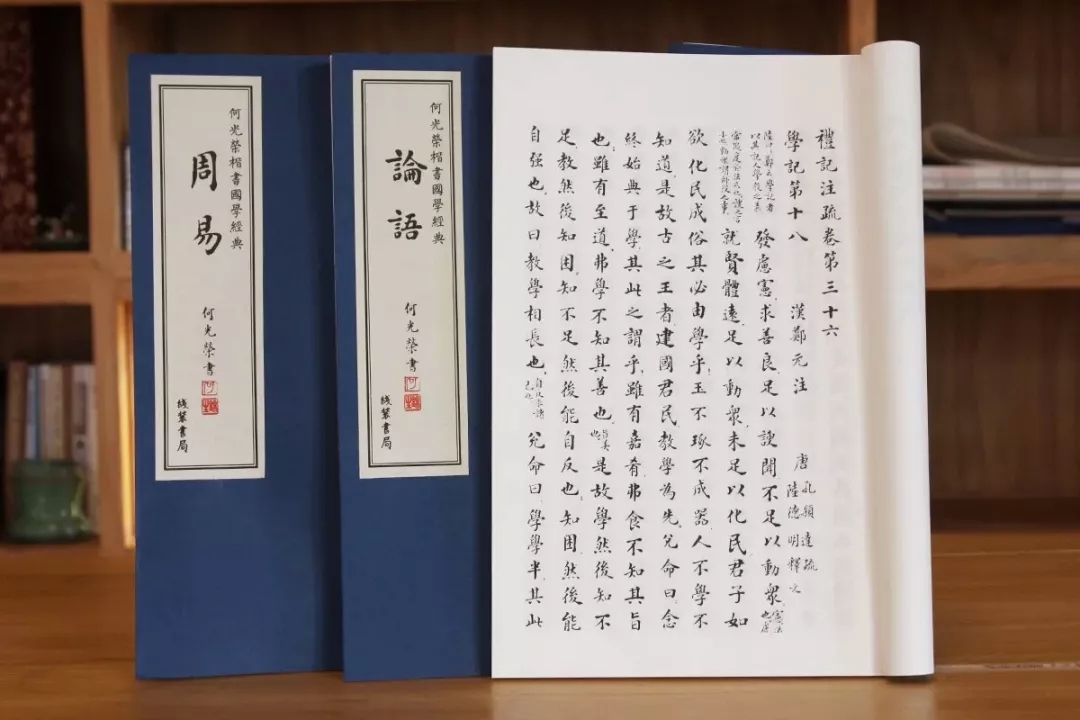 何光榮楷書國學經典
周易
何光榮書
綫裝書局
何光榮楷書國學經典
論語
何光榮書
綫裝書局
禮記注疏卷第三十六
學記第十八 漢鄭元注 唐 孔穎達疏 陸德明釋文
陸曰鄭云學記者以其記人學教之義 發慮憲求善良足以謏聞不足以動衆 憲法也慮
就賢體遠足以動衆未足以化民君子如
欲化民成俗其必由學乎玉不琢不成器人不學不
知道是故古之王者建國君民教學為先兌命曰念
終始典于學其此之謂乎雖有嘉肴弗食不知其旨
也雖有至道弗學不知其善也 旨美也 是故學然後知不
足教然後知困知不足然後能自反也知困然後能
自强也故曰教學相長也 自反求諸己也 兌命曰學學半其此